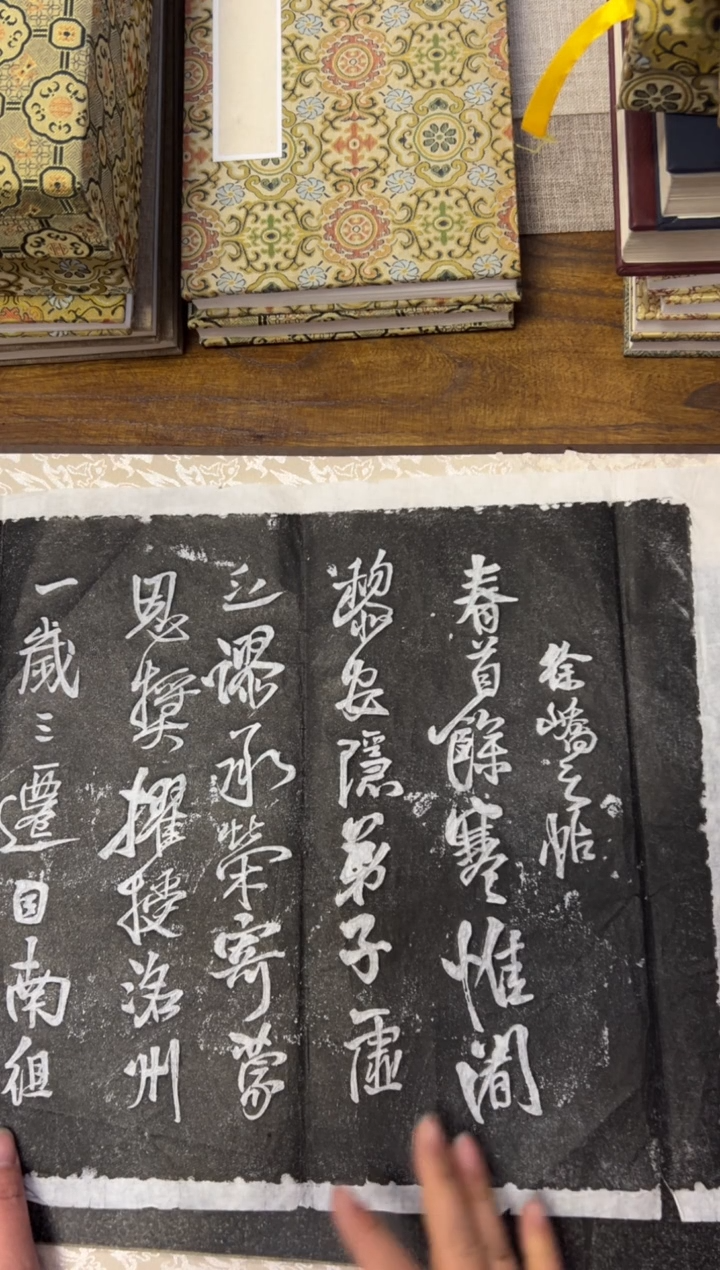 徐嶠之帖
春首餘寒惟闍
黎安隱弟子虛
乏謬承榮寄蒙
恩獎擢授洺州
一歲三遷自南徂